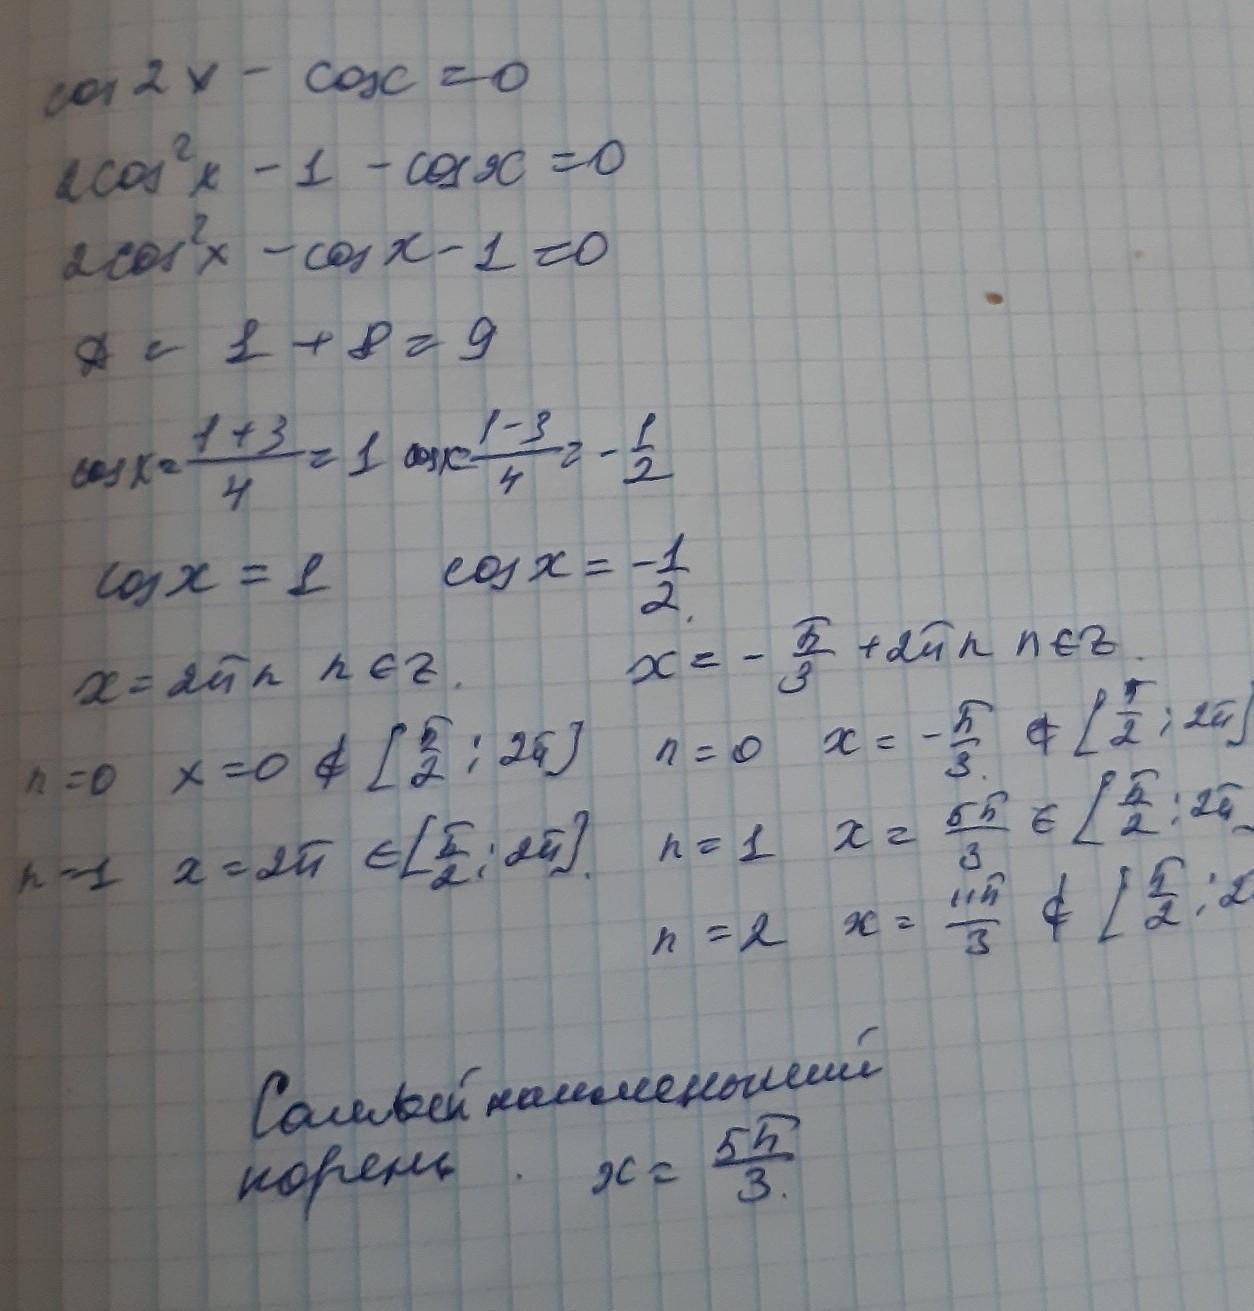 cos 2x - cosx = 0
2cos²x - 1 - cosx = 0
2cos²x - cosx - 1 = 0
D = 1 + 8 = 9
cosx = (1+3)/4 = 1 cosx = (1-3)/4 = -1/2
cosx = 1 cosx = -1/2.
x = 2πn n ∈ z. x = -π/3 + 2πn n ∈ z.
n=0 x=0 ∉ [π/2; 2π] n=0 x = -π/3. ∉ [π/2; 2π]
n=1 x=2π ∈ [π/2; 2π]. n=1 x = 5π/3 ∈ [π/2; 2π
n=2 x = 11π/3 ∉ [π/2; 2
Самый наименьший
корень. x = 5π/3.